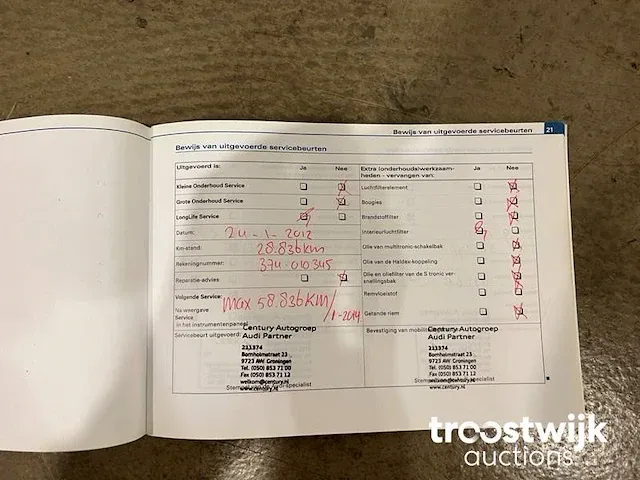 Bewijs van uitgevoerde servicebeurten 21
Bewijs van uitgevoerde servicebeurten
Uitgevoerd is: Ja Nee
Kleine Onderhoud Service
Grote Onderhoud Service
LongLife Service
Datum: 24-1-2012
Km-stand: 28.836km
Rekeningnummer: 374-010345
Reparatie-advies
Volgende Service:
Na weergave
Service
in het instrumentenpaneel
max 58.836km/
1-2014
Servicebeurt uitgevoerd:
Century Autogroep
Audi Partner
211374
Bornholmstraat 23
9723 AW Groningen
Tel. (050) 853 71 00
Fax (050) 853 71 12
welkom@century.nl
www.century.nl
Extra (onderhouds)werkzaam-
heden - vervangen van: Ja Nee
Luchtfilterelement
Bougies
Brandstoffilter
Interieurluchtfilter
Olie van multitronic-schakelbak
Olie van de Haldex-koppeling
Olie en oliefilter van de S tronic ver-
snellingsbak
Remvloeistof
Getande riem
Bevestiging van
Century Autogroep
Audi Partner
211374
Bornholmstraat 23
9723 AW Groningen
Tel. (050) 853 71 00
Fax (050) 853 71 12
welkom@century.nl
www.century.nl
troostwijk
auctions